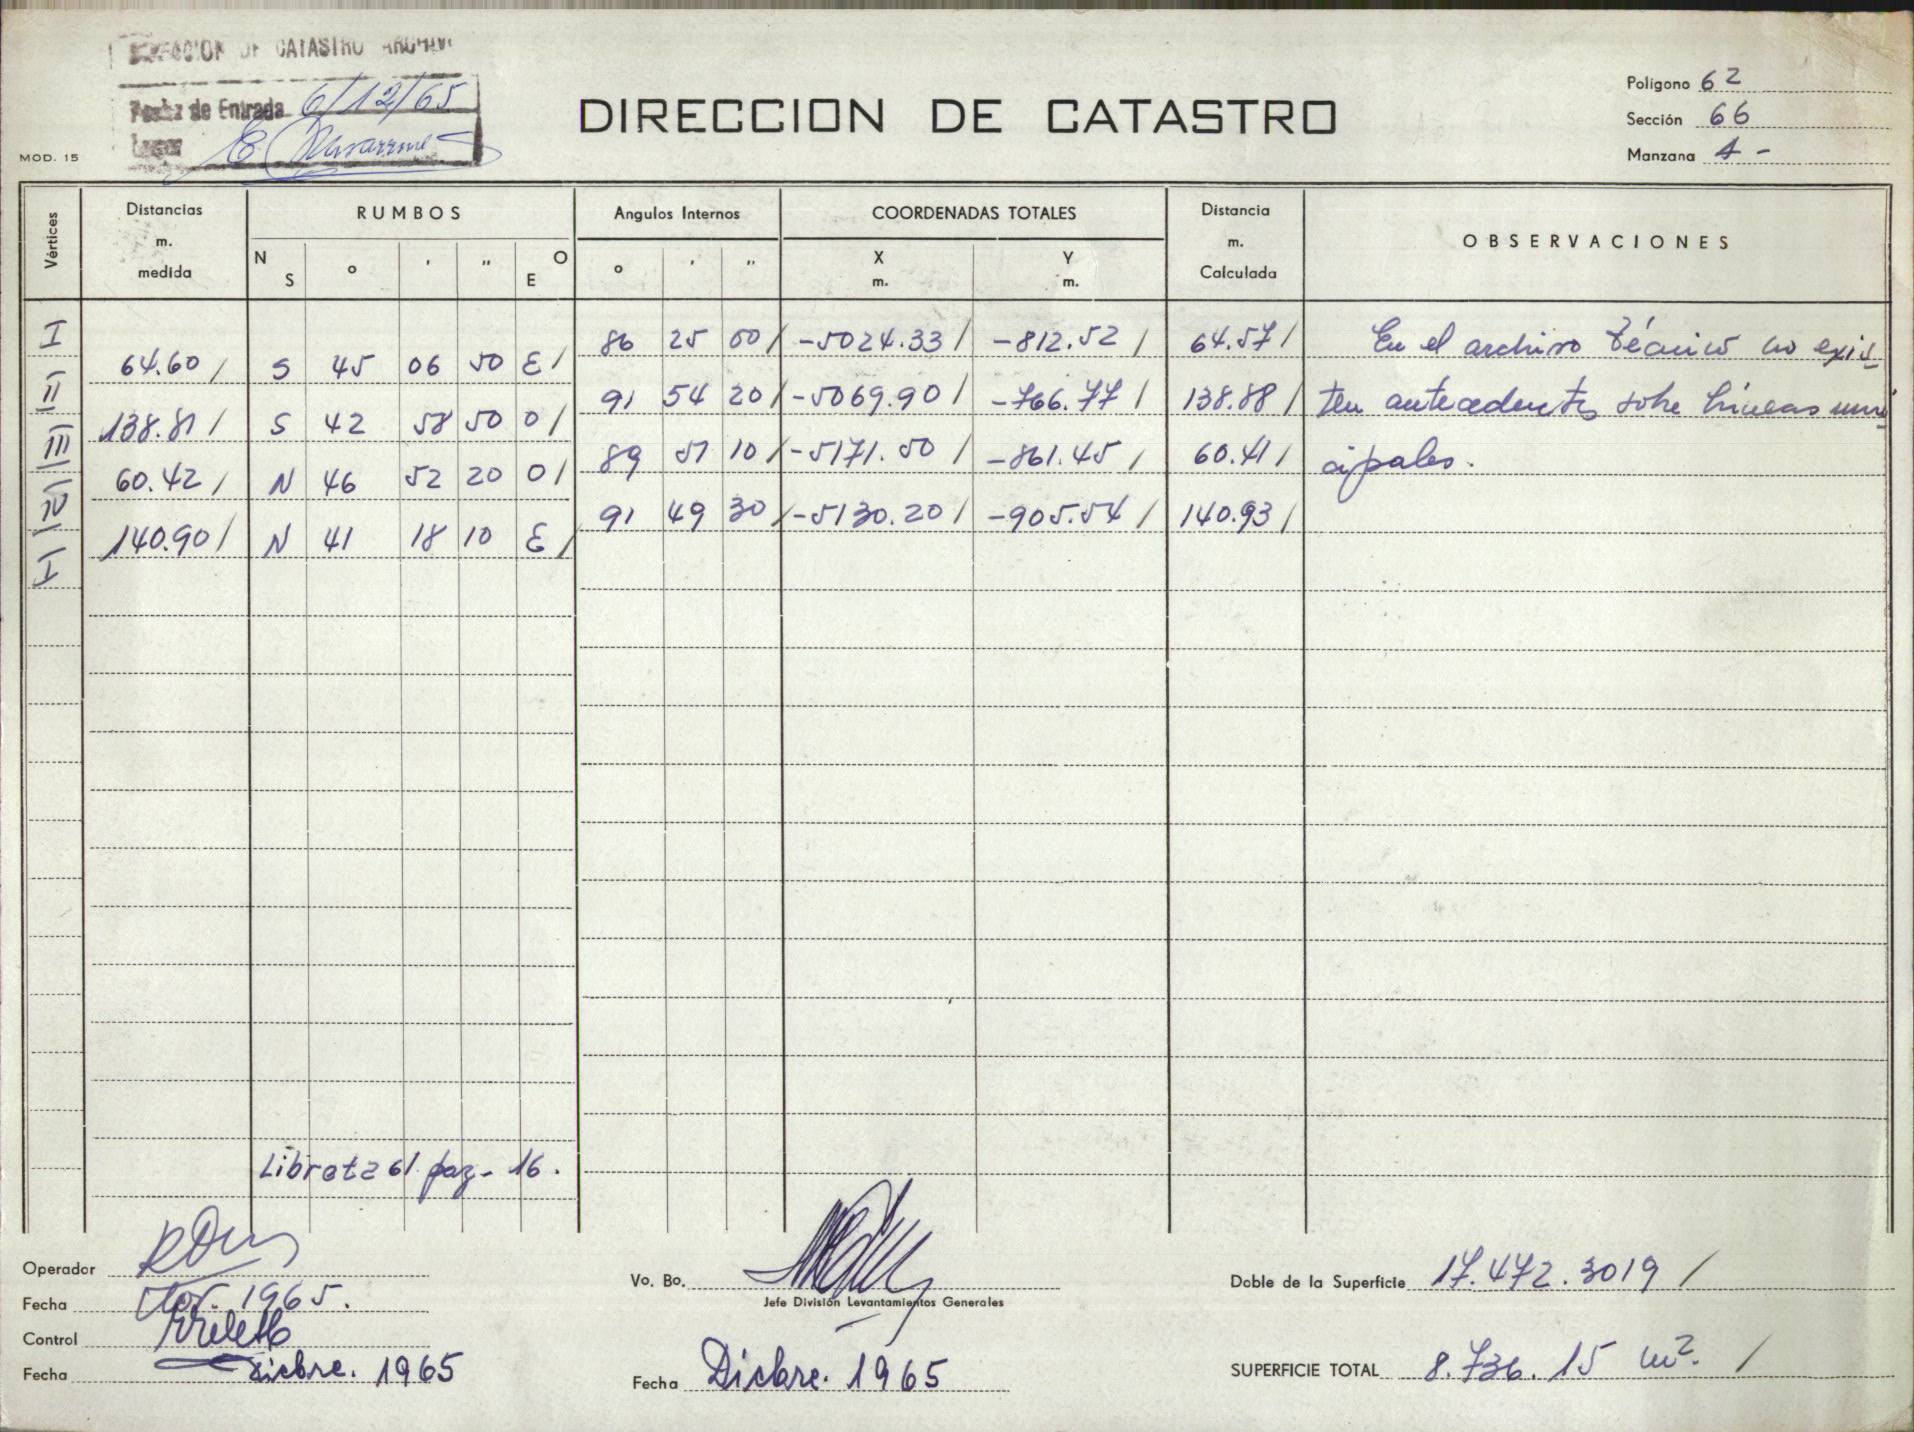 DIRECCION DE CATASTRO ARCHIVO
Fecha de Entrada 6/12/65
Legajo
MOD. 15
DIRECCION DE CATASTRO
Polígono 62
Sección 66
Manzana 4 -
Vértices Distancias m. medida RUMBOS Angulos Internos COORDENADAS TOTALES Distancia m. Calculada OBSERVACIONES
N S ° ' " O E ° ' " X m. Y m.
I 86 25 00/ -5024.33/ -812.52/ 64.57/ En el archivo técnico no exis
64.60/ S 45 06 50 E/
II 91 54 20/ -5069.90/ -766.77/ 138.88/ ten antecedentes sobre líneas muni
138.81/ S 42 58 50 O/
III 89 51 10/ -5171.50/ -861.45/ 60.41/ cipales.
60.42/ N 46 52 20 O/
IV 91 49 30/ -5130.20/ -905.54/ 140.93/
140.90/ N 41 18 10 E/
I
Libreta 61 pag- 16.
Operador
Fecha Nov. 1965.
Control
Fecha Dicbre. 1965
Vo. Bo.
Jefe División Levantamientos Generales
Fecha Dicbre. 1965
Doble de la Superficie 17.472.3019 /
SUPERFICIE TOTAL 8.736.15 m². /